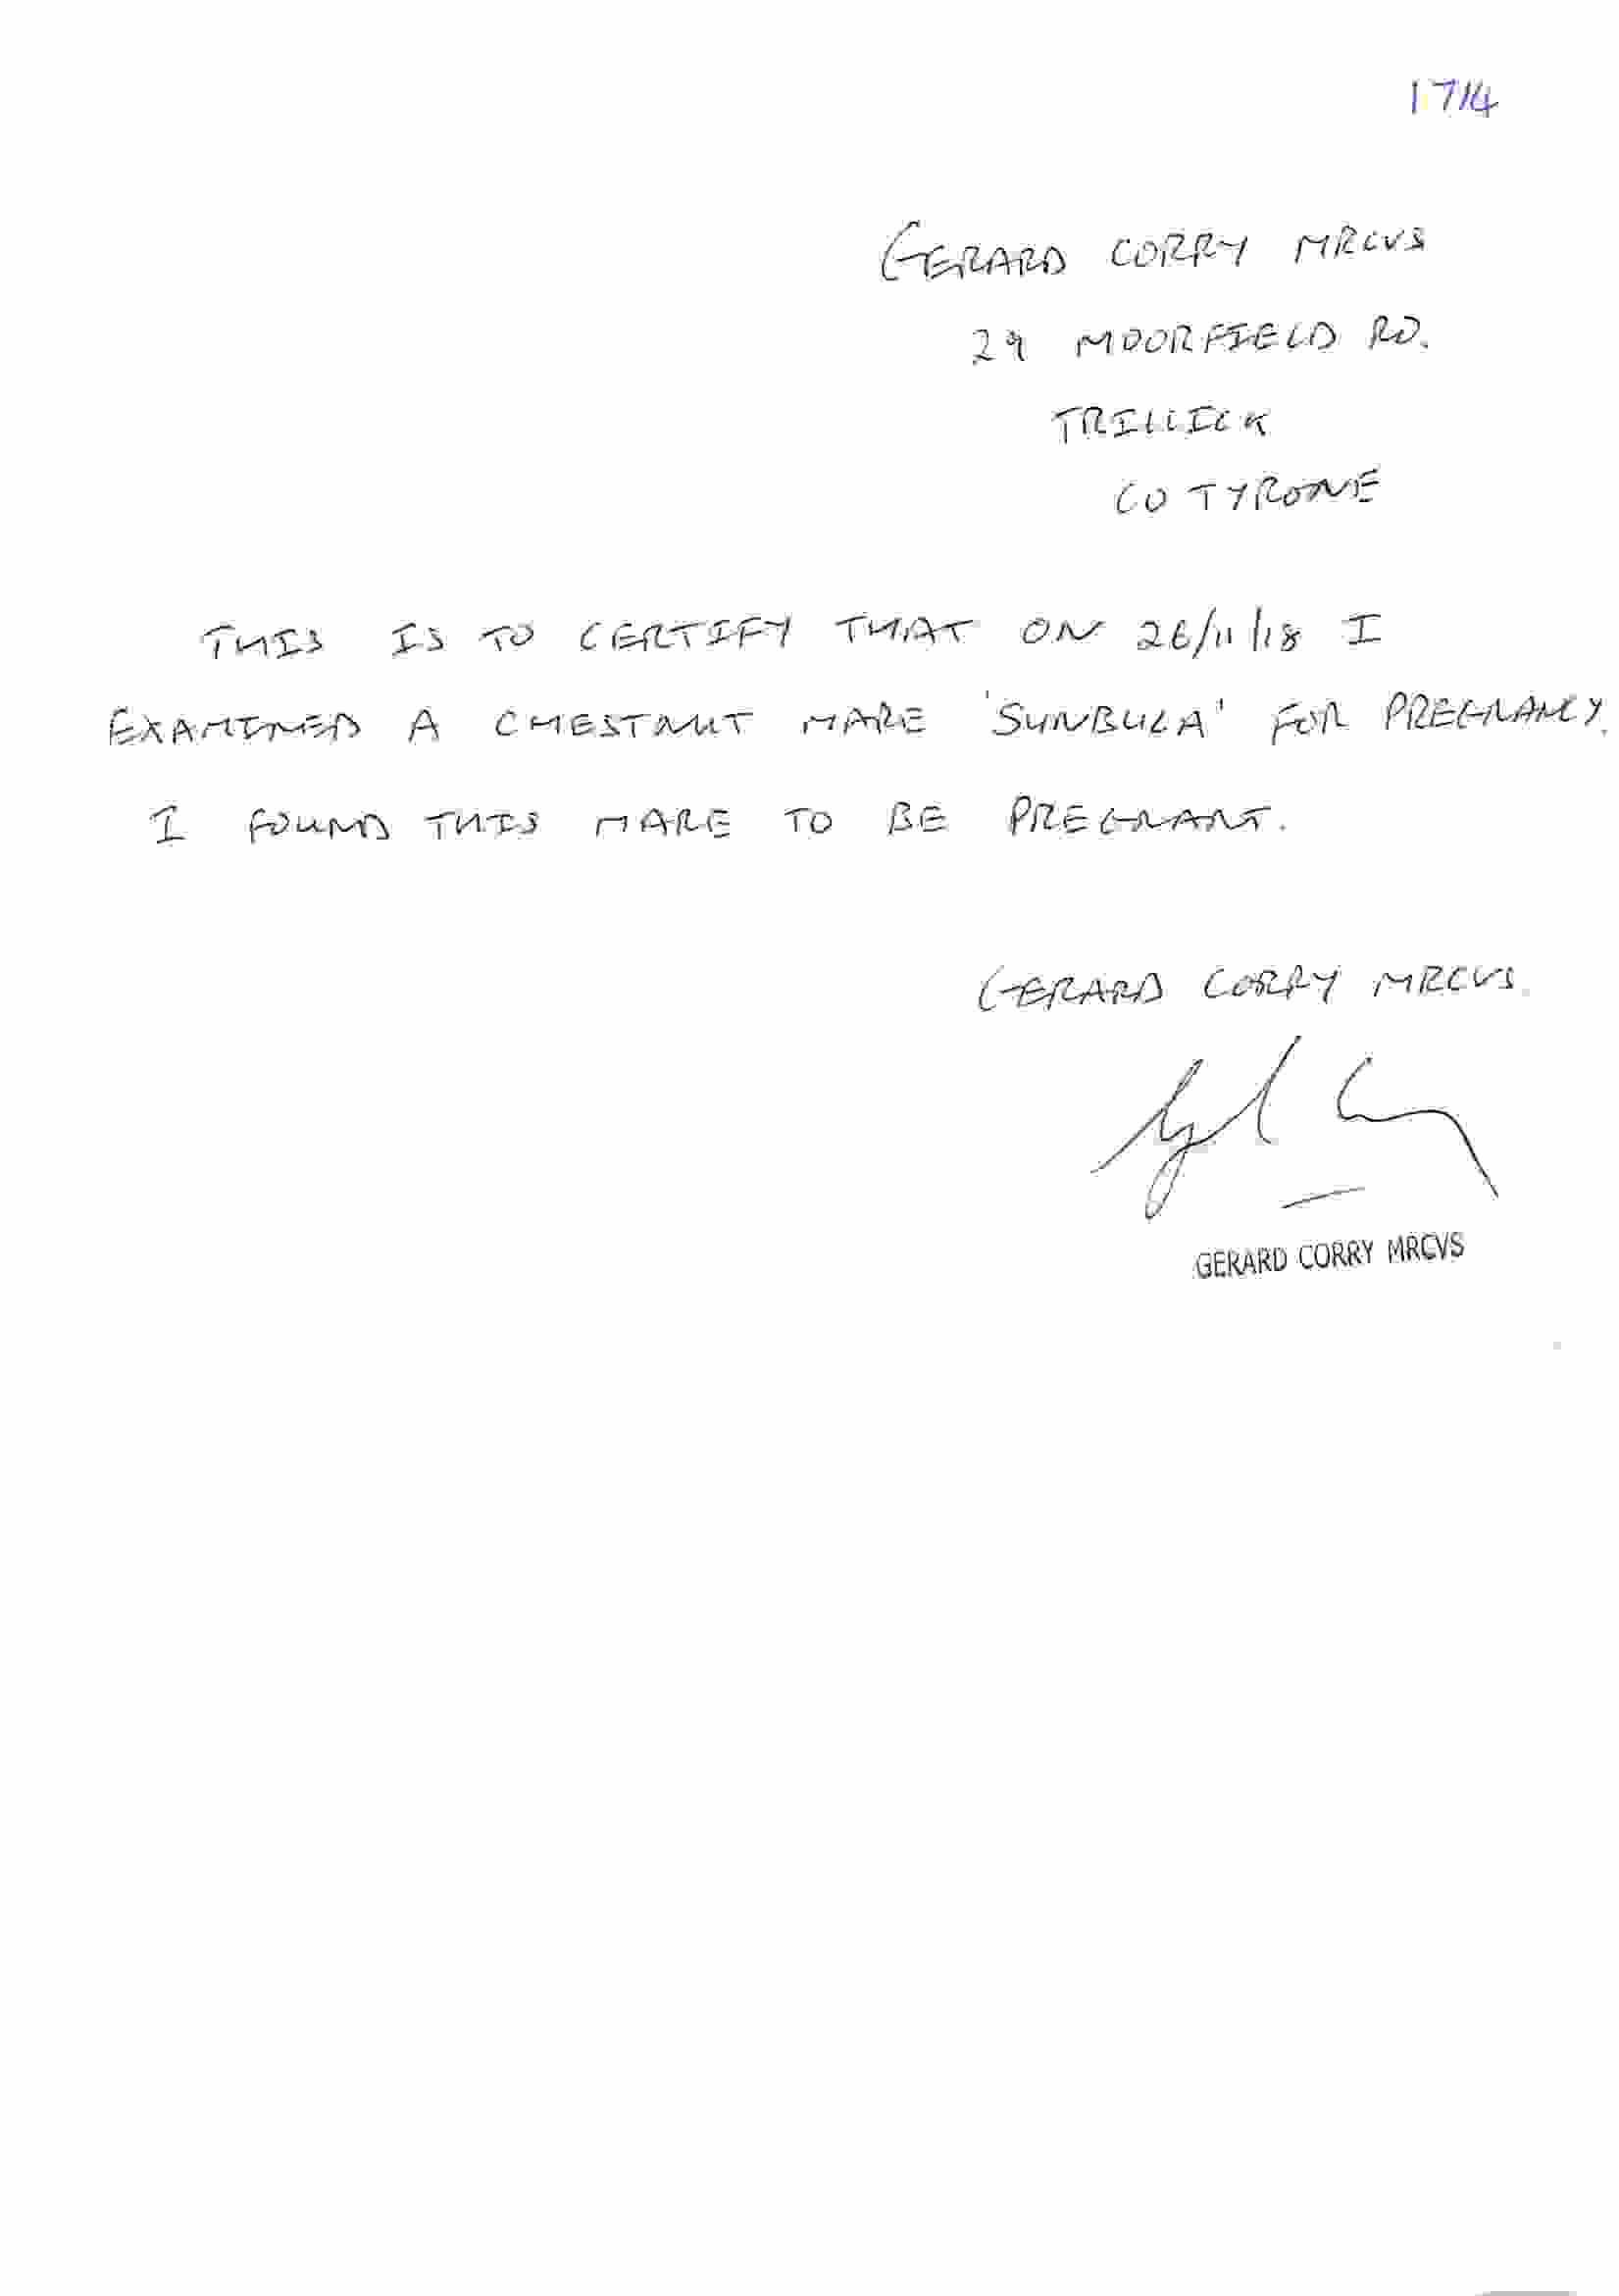 1714
GERARD CORRY MRCVS
29 MOORFIELD RD.
TRILLICK
CO TYRONE
THIS IS TO CERTIFY THAT ON 26/11/18 I
EXAMINED A CHESTNUT MARE 'SUNBULA' FOR PREGNANCY.
I FOUND THIS MARE TO BE PREGNANT.
GERARD CORRY MRCVS.
GERARD CORRY MRCVS